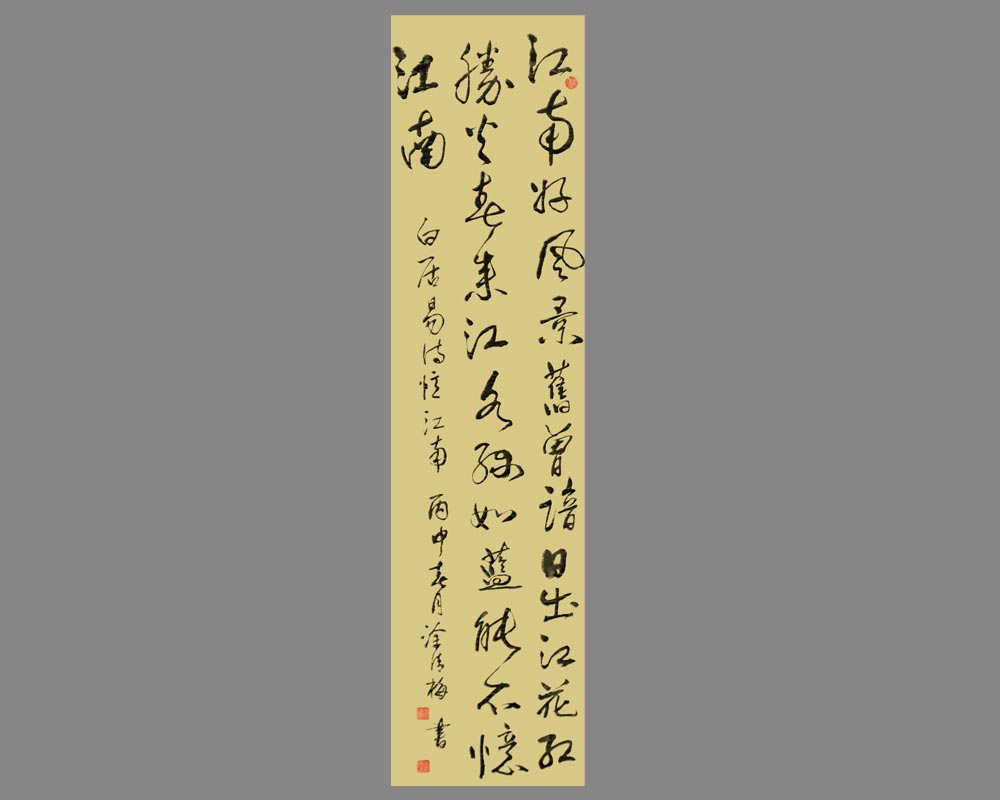 江南好風景舊曾諳日出江花紅
勝火春来江水綠如藍能不憶
江南
白居易詩憶江南 丙申春月涂清梅書